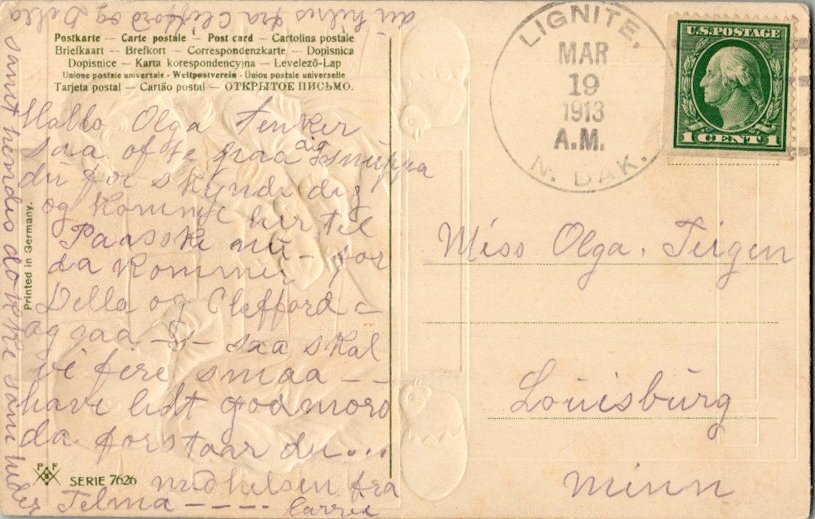 Postkarte — Carte postale — Post card — Cartolina postale
Briefkaart — Brefkort — Correspondenzkarte — Dopisnica
Dopisnice — Karta korespondencyjna — Levelező-Lap
Unione postale universale - Weltpostverein - Union postale universelle
Tarjeta postal — Cartão postal — ОТКРЫТОЕ ПИСЬМО.
Hallo Olga Tenker
saa ofte paa
du før skynde dig
og Komme her til
Paaske nu – for
da Kommer
Della og Clefford –
og saa – J – saa skal
vi fire smaa – –
have lidt godmoro
da forstaar du...
med helsen fra
Telma – – – – Carrie
fra Clefford og Della
Printed in Germany.
SERIE 7626
LIGNITE,
MAR
19
1913
A.M.
N. DAK.
U.S. POSTAGE
1 CENT 1
Miss Olga. Teigen
Louisburg
Minn